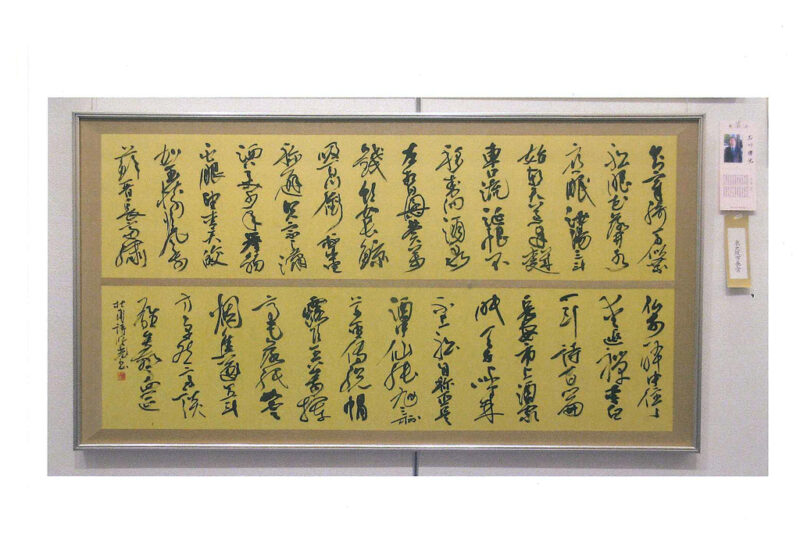 知章騎馬似乗
船眼花落井水
底眠汝陽三斗
始朝天道逢麹
車口流涎恨不
移封向酒泉
左相日興費萬
錢飲如長鯨
吸百川銜杯樂
聖稱避賢宗之瀟
灑美少年舉觴
白眼望青天皎
如玉樹臨風前
蘇晉長齋繡
佛前醉中往往
愛逃禪李白
一斗詩百篇
長安市上酒家
眠天子呼來
不上船自稱臣是
酒中仙張旭三
杯草聖傳脫帽
露頂王公前揮
毫落紙如雲
煙焦遂五斗
方卓然高談
雄辯驚四筵
杜甫詩